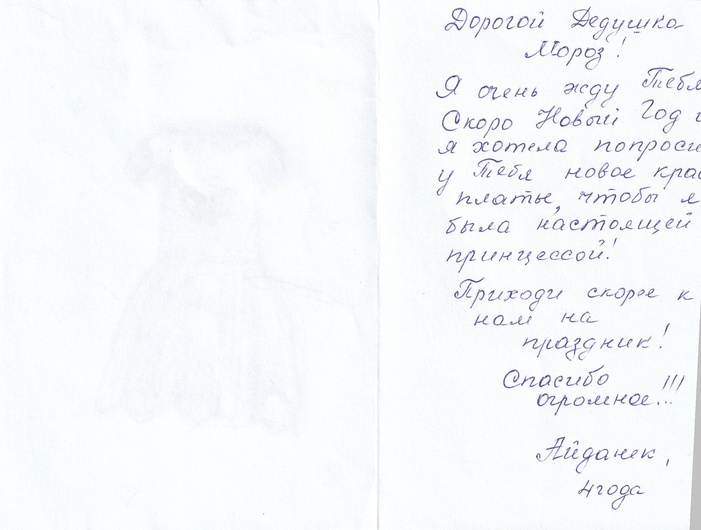 Дорогой Дедушка
Мороз!
Я очень жду Тебя
Скоро Новый Год и
я хотела попроси
у Тебя новое крас
платье, чтобы я
была настоящей
принцессой!
Приходи скорее к
нам на
праздник!
Спасибо
огромное...!!!
Айданек,
4 года